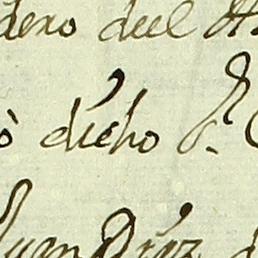 dero del
ò dicho S.r
Juan Díaz